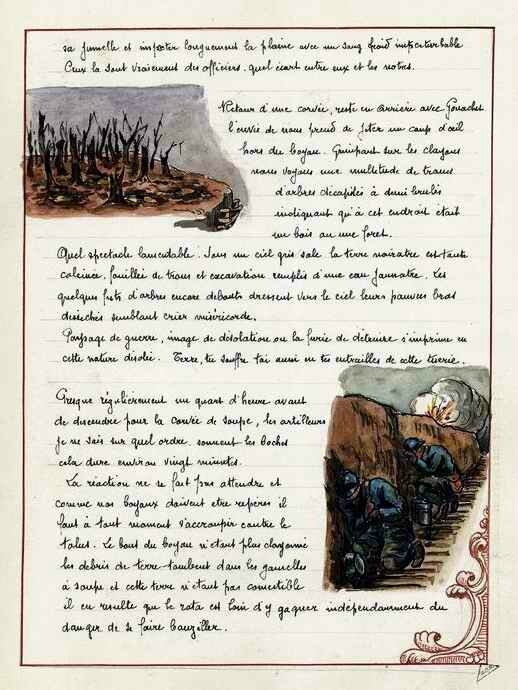 sa jumelle et inspecter longuement la plaine avec un sang froid imperturbable
Ceux la sont vraiement des officiers. quel écart entre eux et les notres.
Retour d'une corvée, resté en arrière avec Gouachet
l'envie de nous prend de jeter un coup d'œil
hors du boyau. Grimpant sur les clayons
nous voyons une multitude de troncs
d'arbres décapités à demi brulés
indiquant qu'à cet endroit était
un bois ou une foret.
Quel spectacle lamentable. Sous un ciel gris sale la terre noiratre est toute
calcinée, fouillée de trous et excavation remplis d'une eau jaunatre. Les
quelques futs d'arbres encore debouts dressent vers le ciel leurs pauvres bras
desséchés semblant crier miséricorde.
Paysage de guerre, image de désolation ou la furie de détruire s'imprime en
cette nature disolée. Terre, tu souffre toi aussi en tes entrailles de cette tuerie.
Presque régulièrement un quart d'heure avant
de descendre pour la corvée de soupe, les artilleurs
je ne sais sur quel ordre, sonnent les boches
cela dure environ vingt minutes.
La réaction ne se fait pas attendre et
comme nos boyaux doivent etre repérés il
faut à tout moment s'accroupir contre le
talus. Le bout du boyau n'étant plus clayonné
les debris de terre tombent dans les gamelles
à soupe et cette terre n'étant pas comestible
il en resulte que le rata est loin d'y gagner independamment du
danger de se faire bouziller.